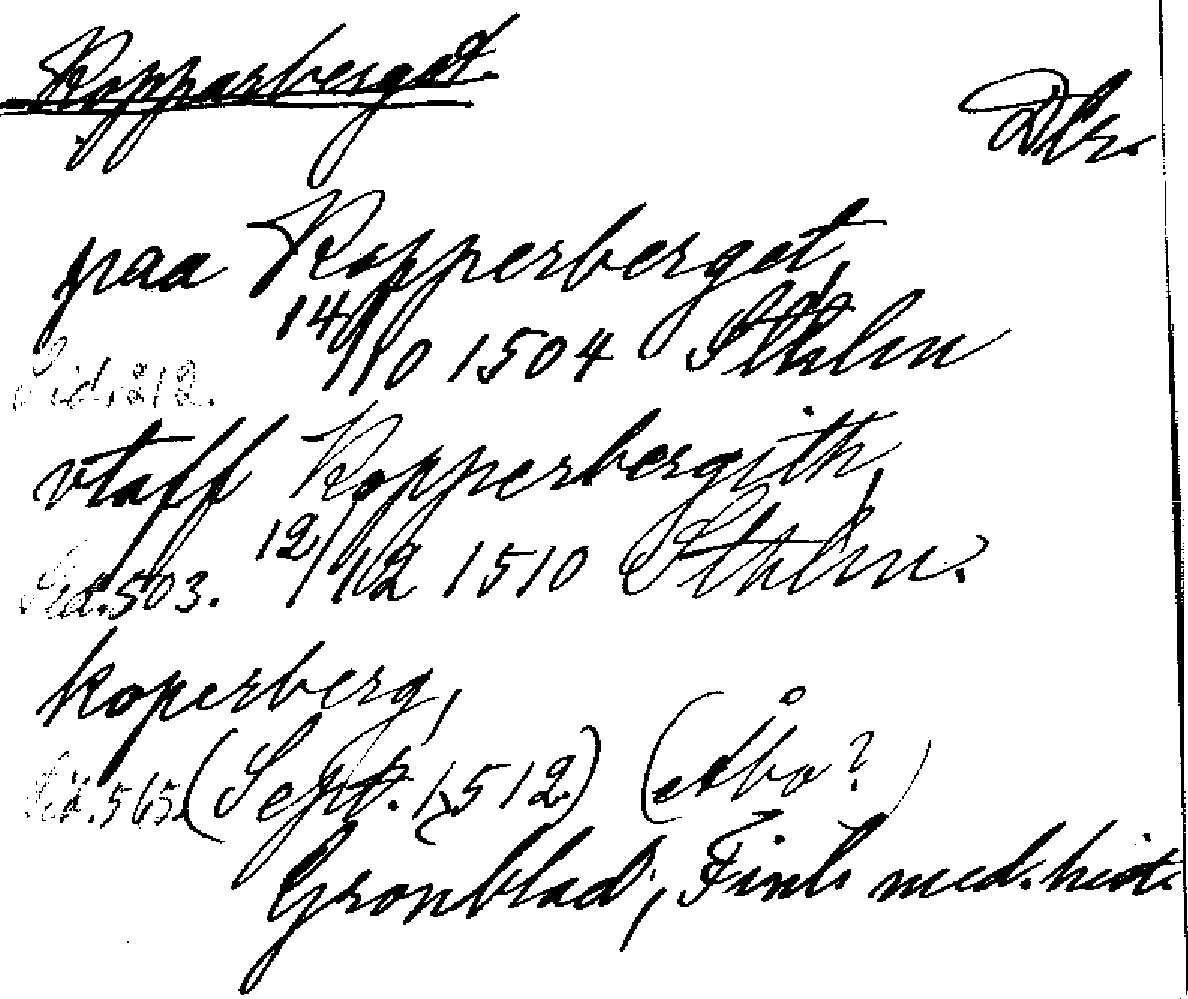 Kopparberget.
Dlr.
paa Kopperberget,
14/10 1504 Sthlm
Sid. 212.
vtaff Kopperbergith,
Sid. 503. 12/12 1510 Sthlm.
koperberg,
Sid. 565. (Sept. 1512) (Åbo?)
Grönblad, Finl. med. hist.